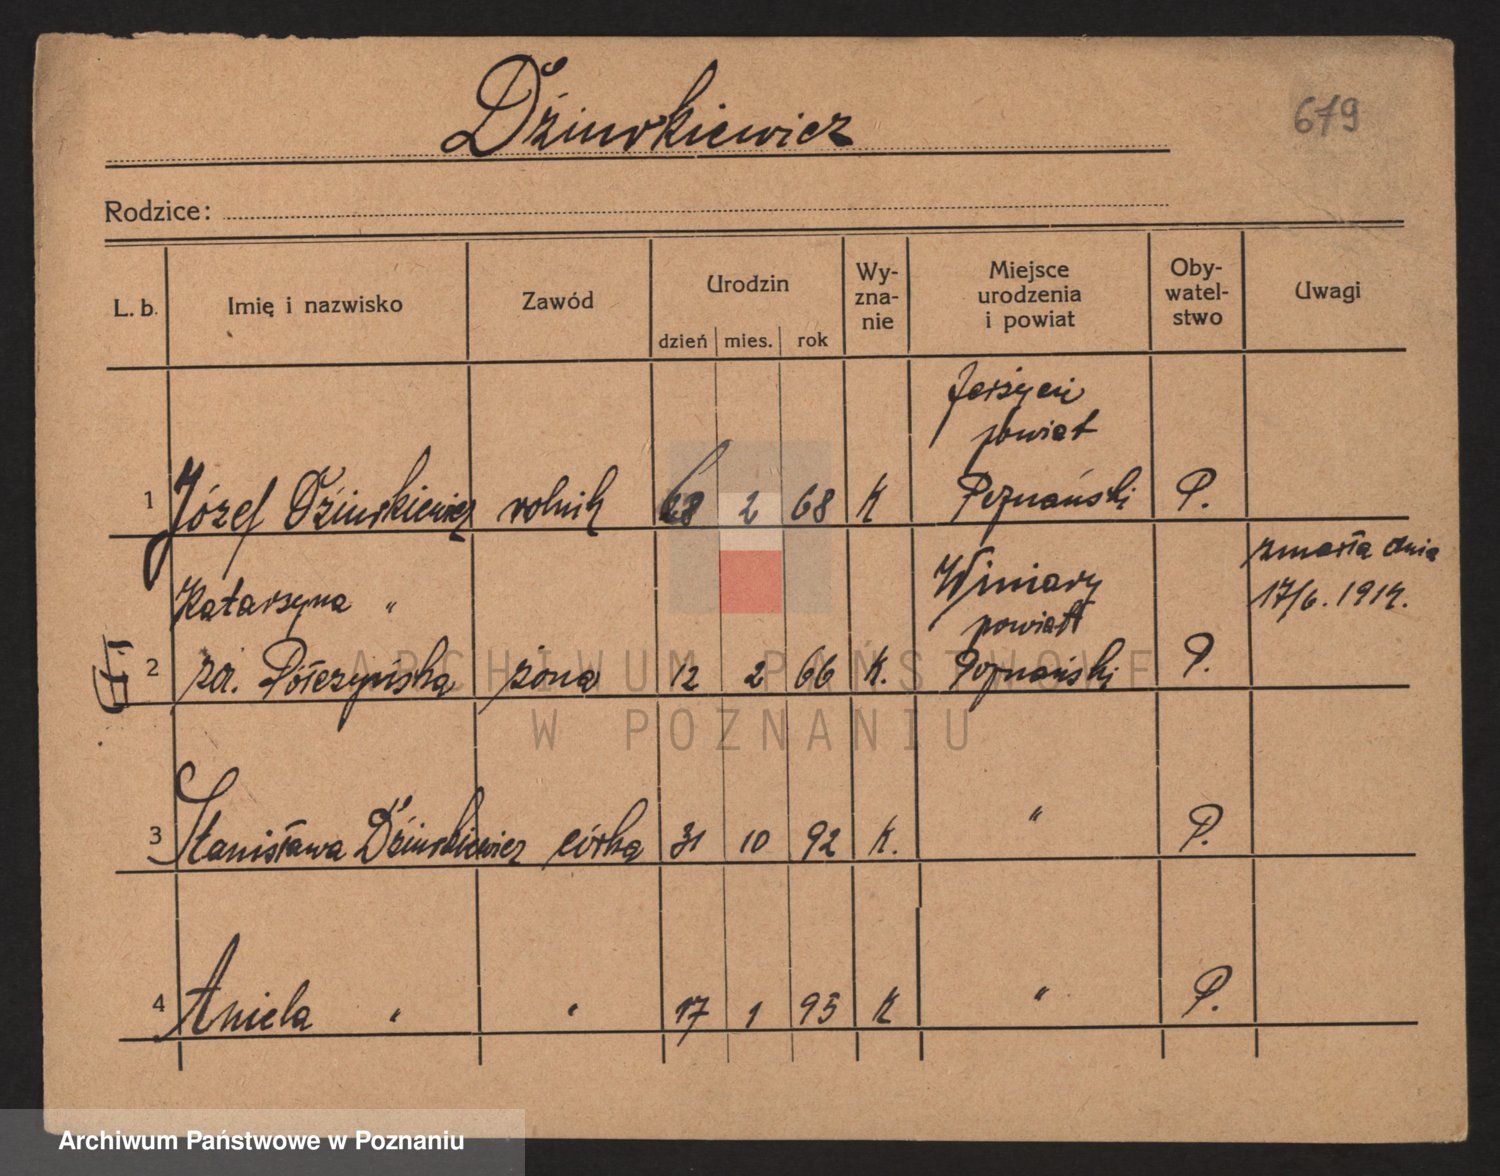 Dźiurkiewicz
679
Rodzice:
L. b. Imię i nazwisko Zawód Urodzin Wy-zna-nie Miejsce urodzenia i powiat Oby-watel-stwo Uwagi
dzień mies. rok
Jerzyce
powiat
1 Józef Dźiurkiewicz rolnik 2 68 K Poznański P.
Katarzyna " Winiary zmarła dnia
powiat 17/6. 1914.
2 żona 12 2 66 K. Poznański P.
3 Stanisława Dźiurkiewicz córka 31 10 92 K. " P.
4 Aniela " " 17 1 95 K " P.
ARCHIWUM PAŃSTWOWE
W POZNANIU
Archiwum Państwowe w Poznaniu